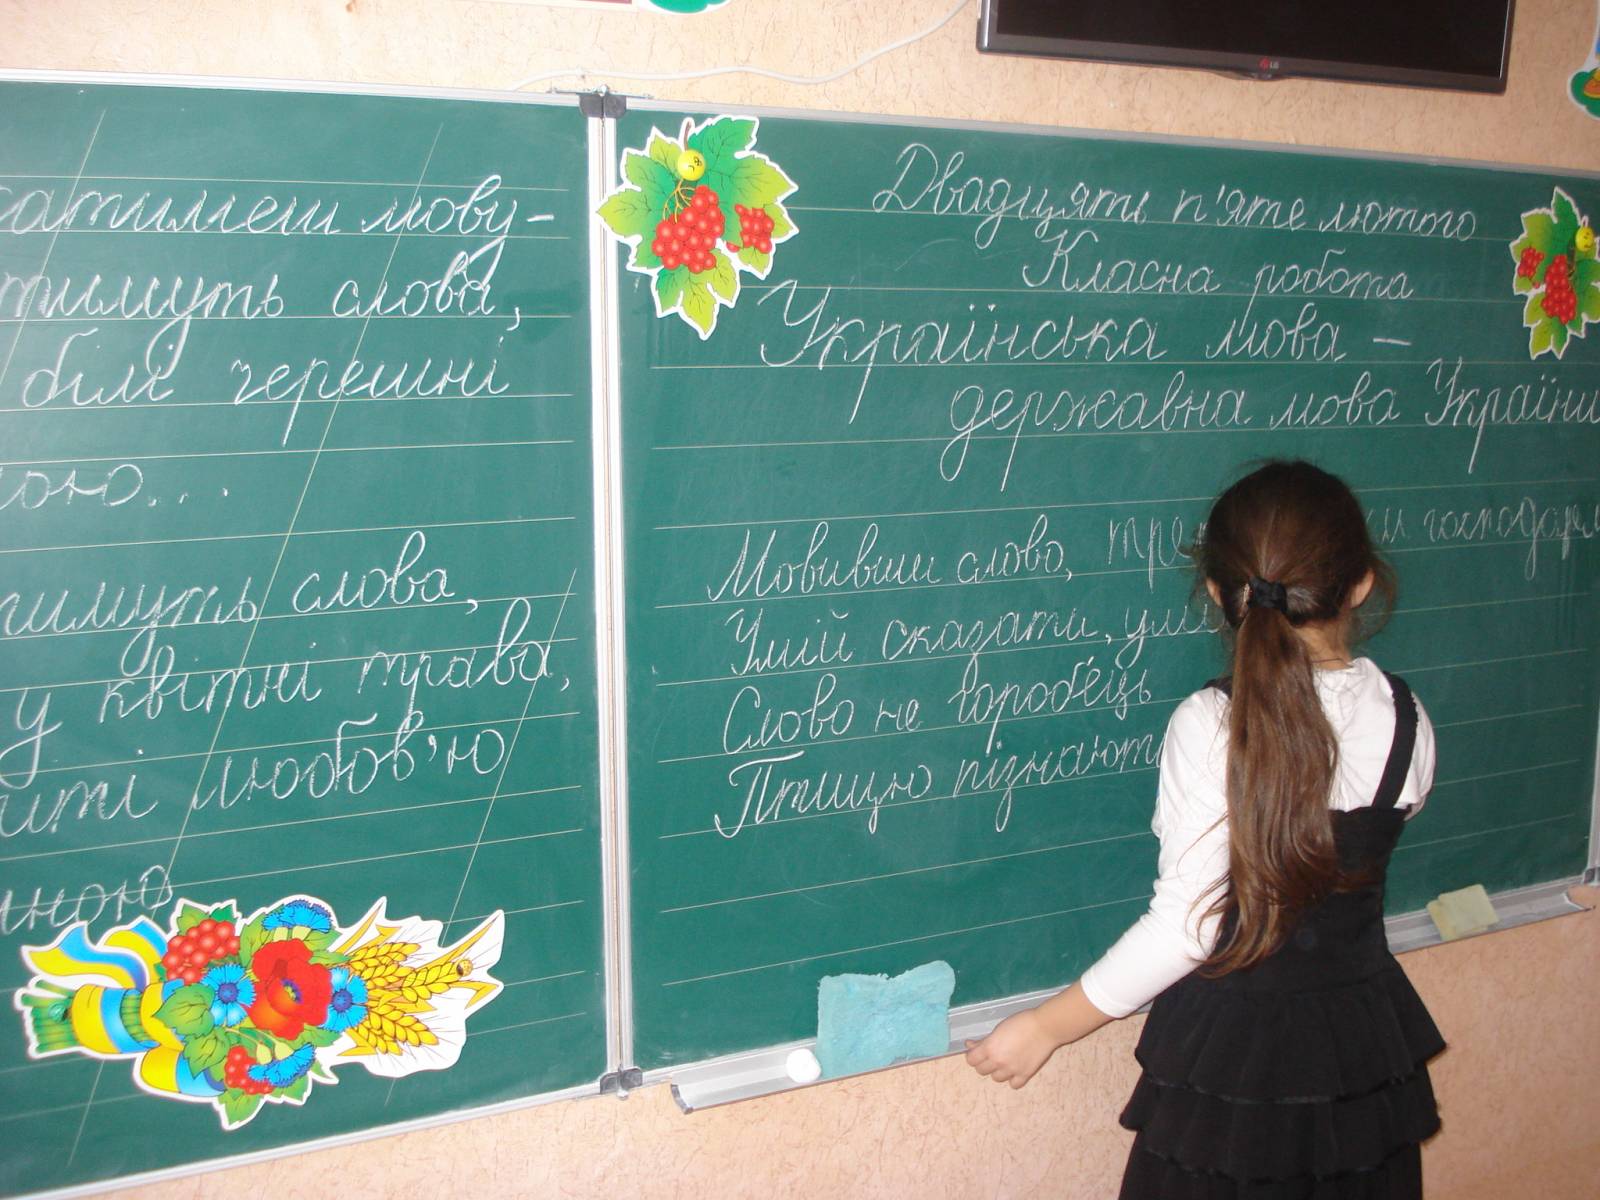 мову –
слова,
білі черешні
слова,
у квітні трава,
любов'ю
LG
Двадцять п'яте лютого
Класна робота
Українська мова –
державна мова України
Мовивши слово, господарем
Умій сказати,
Слово не горобець
Птицю пізнають